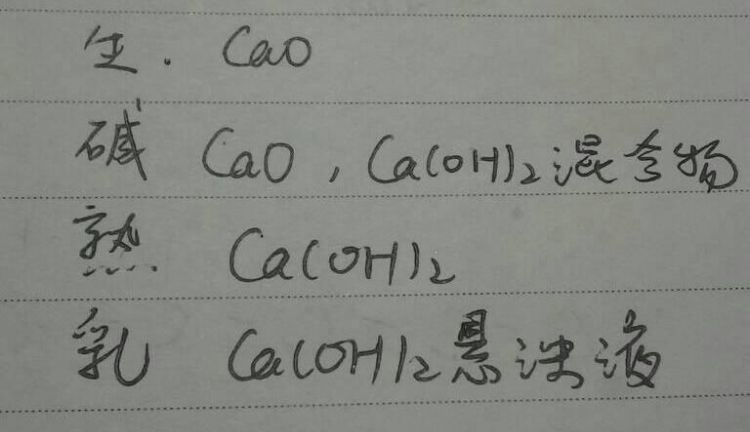 生. CaO
碱 CaO, Ca(OH)2混合物
熟 Ca(OH)2
乳 Ca(OH)2悬浊液